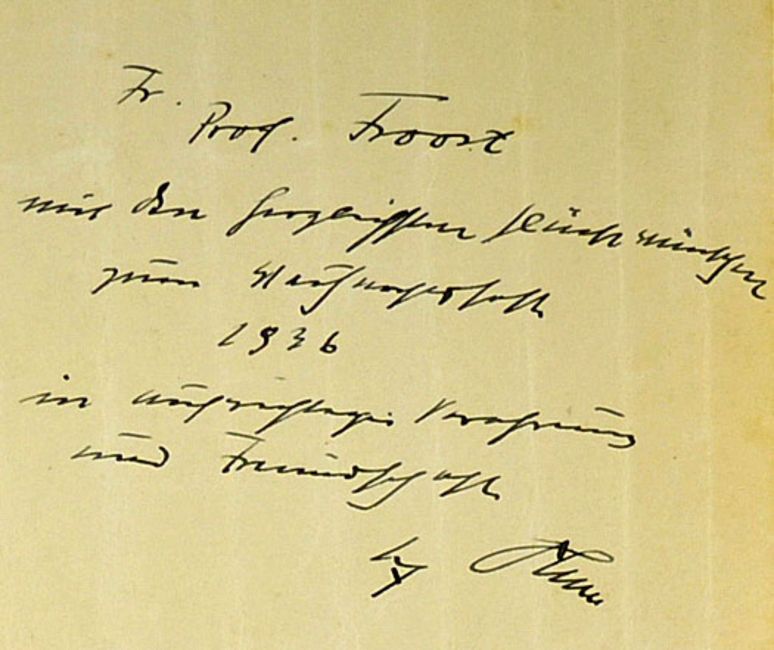 Fr.
Prof. Froost
mit den herzlichsten Glückwünschen
zum Weihnachtsfeste
1936
in aufrichtiger Verehrung
und Freundschaft